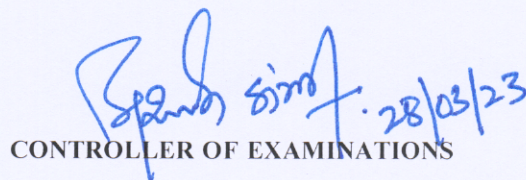 28/03/23
CONTROLLER OF EXAMINATIONS